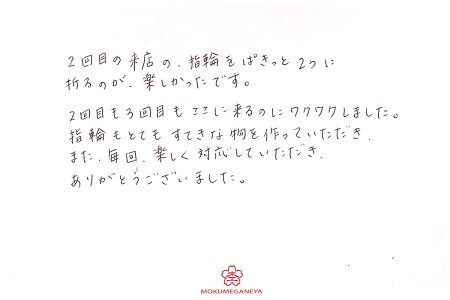 2回目の来店の、指輪をぱきっと2つに
折るのが、楽しかったです。
2回目も3回目もここに来るのにワクワクしました。
指輪もとてもすてきな物を作っていただき、
また、毎回、楽しく対応していただき、
ありがとうございました。
MOKUMEGANEYA